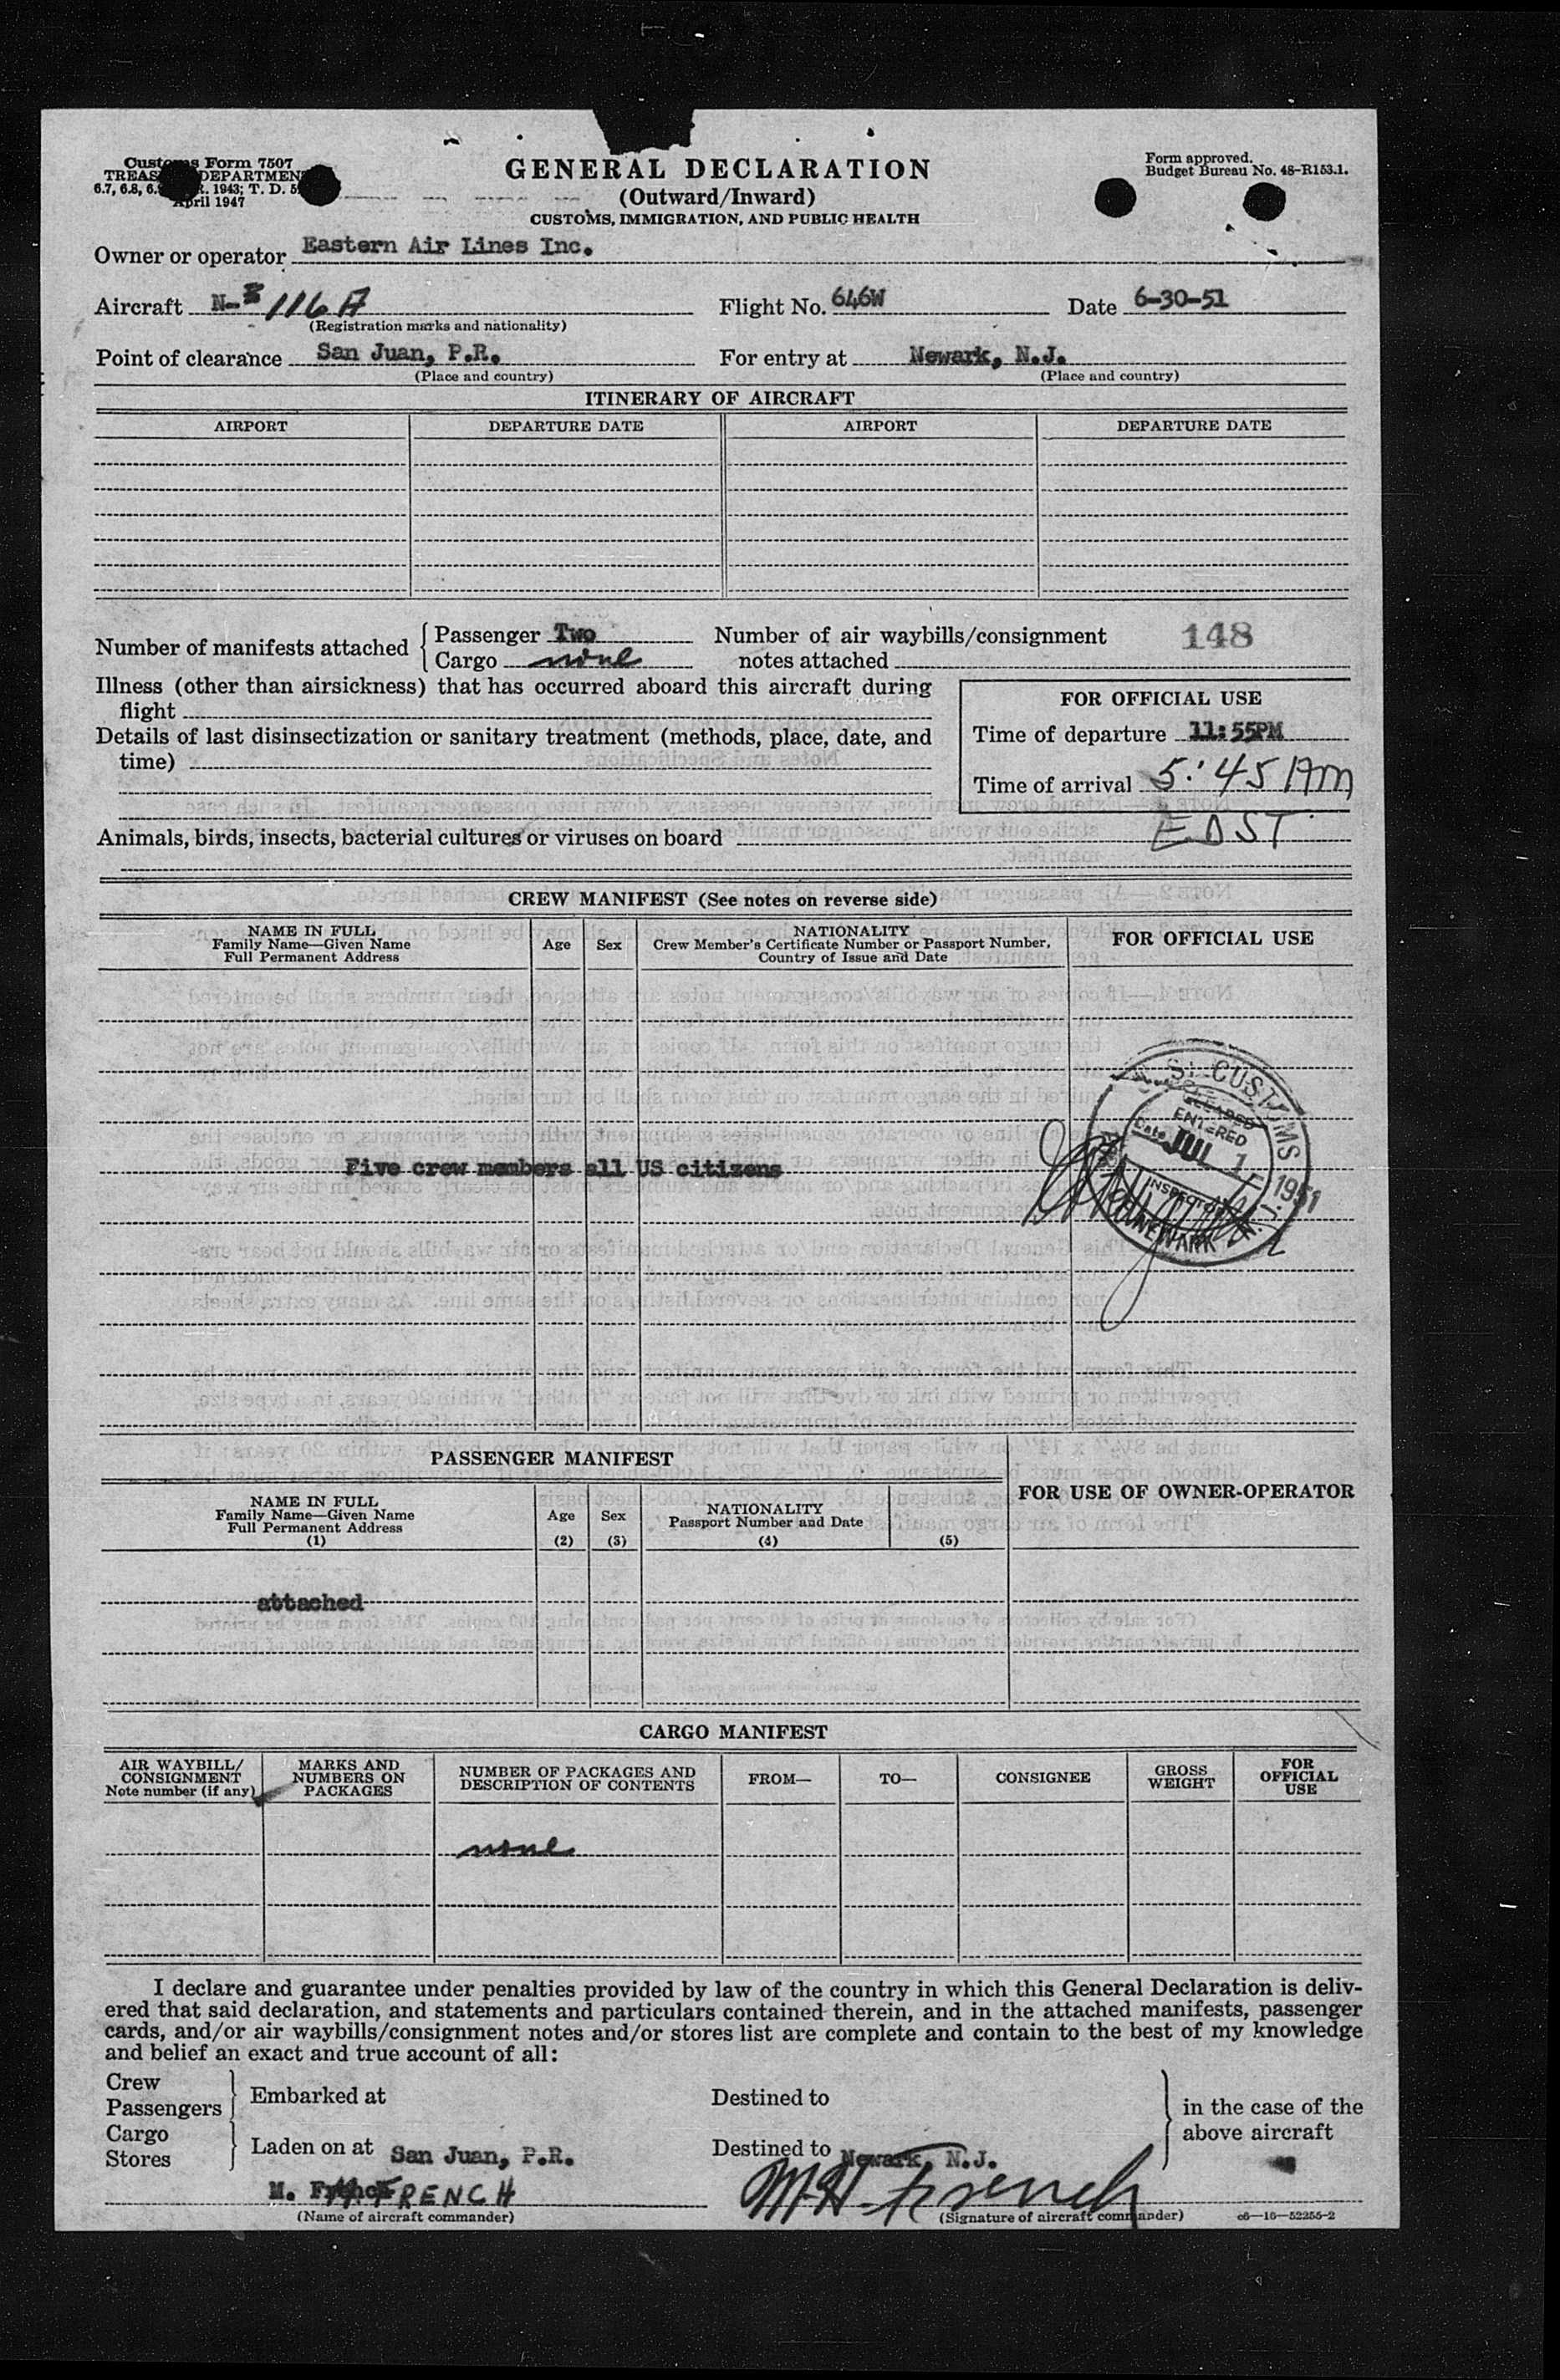 Customs Form 7507
TREAS DEPARTMENT
6.7, 6.8, 6. R. 1943; T. D. 5
April 1947
GENERAL DECLARATION
(Outward/Inward)
CUSTOMS, IMMIGRATION, AND PUBLIC HEALTH
Form approved.
Budget Bureau No. 48-R153.1.
Owner or operator Eastern Air Lines Inc.
Aircraft N- 116A Flight No. 646W Date 6-30-51
(Registration marks and nationality)
Point of clearance San Juan, P.R. For entry at Newark, N.J.
(Place and country) (Place and country)
ITINERARY OF AIRCRAFT
AIRPORT DEPARTURE DATE AIRPORT DEPARTURE DATE
Number of manifests attached { Passenger Two
Cargo none
Number of air waybills/consignment
notes attached
148
Illness (other than airsickness) that has occurred aboard this aircraft during
flight
Details of last disinsectization or sanitary treatment (methods, place, date, and
time)
FOR OFFICIAL USE
Time of departure 11:55PM
Time of arrival 5:45 AM
EDST
Animals, birds, insects, bacterial cultures or viruses on board
CREW MANIFEST (See notes on reverse side)
NAME IN FULL
Family Name—Given Name
Full Permanent Address
Age
Sex
NATIONALITY
Crew Member's Certificate Number or Passport Number,
Country of Issue and Date
FOR OFFICIAL USE
Five crew members all US citizens
S. CUSTOMS
CLEARED
ENTERED
Date JUL 1 1951
INSPECTOR
NEWARK N. J.
PASSENGER MANIFEST
FOR USE OF OWNER-OPERATOR
NAME IN FULL
Family Name—Given Name
Full Permanent Address
(1)
Age
(2)
Sex
(3)
NATIONALITY
Passport Number and Date
(4)
(5)
attached
CARGO MANIFEST
AIR WAYBILL/
CONSIGNMENT
Note number (if any)
MARKS AND
NUMBERS ON
PACKAGES
NUMBER OF PACKAGES AND
DESCRIPTION OF CONTENTS
FROM—
TO—
CONSIGNEE
GROSS
WEIGHT
FOR
OFFICIAL
USE
none
I declare and guarantee under penalties provided by law of the country in which this General Declaration is deliv-
ered that said declaration, and statements and particulars contained therein, and in the attached manifests, passenger
cards, and/or air waybills/consignment notes and/or stores list are complete and contain to the best of my knowledge
and belief an exact and true account of all:
Crew
Passengers } Embarked at Destined to
Cargo
Stores } Laden on at San Juan, P.R. Destined to Newark, N.J.
in the case of the
above aircraft
M. FRENCH M.H. French
(Name of aircraft commander) (Signature of aircraft commander) c6—16—52255-2